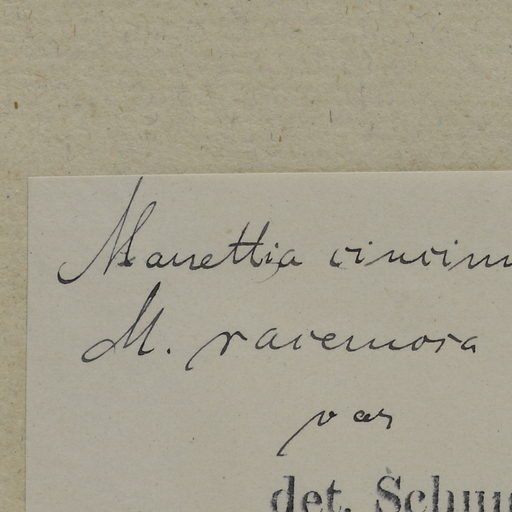 Manettia cincinn
M. racemosa
var
det. Schum